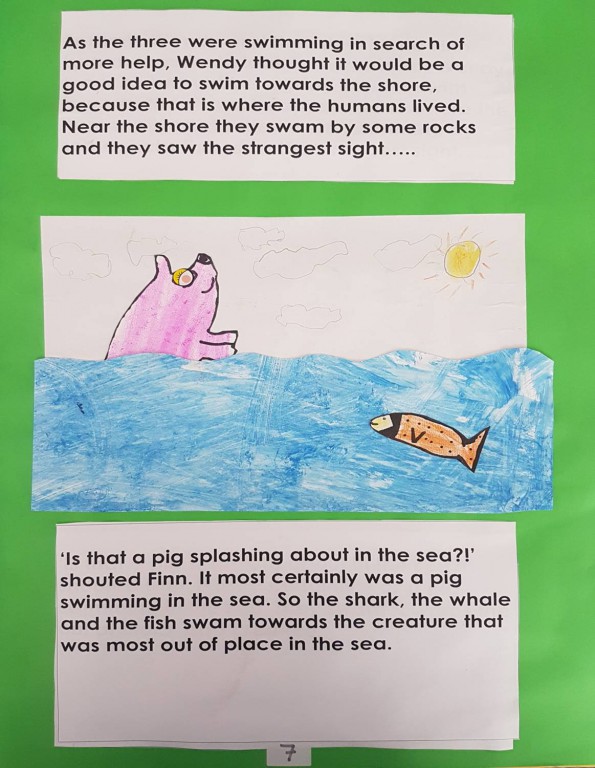 As the three were swimming in search of
more help, Wendy thought it would be a
good idea to swim towards the shore,
because that is where the humans lived.
Near the shore they swam by some rocks
and they saw the strangest sight.....
‘Is that a pig splashing about in the sea?!’
shouted Finn. It most certainly was a pig
swimming in the sea. So the shark, the whale
and the fish swam towards the creature that
was most out of place in the sea.
7